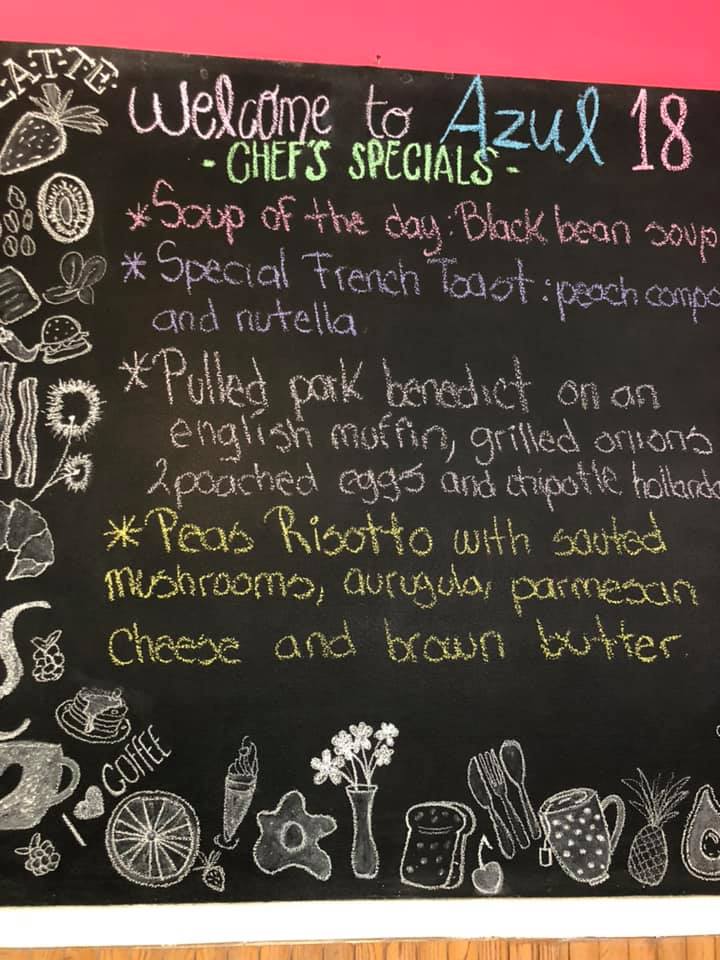 LATTE
Welcome to Azul 18
- CHEF'S SPECIALS -
*Soup of the day: Black bean soup
* Special French Toast: peach compo
and nutella
*Pulled pork benedict on an
english muffin, grilled onions
2 poached eggs and chipotle hollanda
*Peas Risotto with sauted
mushrooms, aurugula, parmesan
cheese and brown butter.
I COFFEE